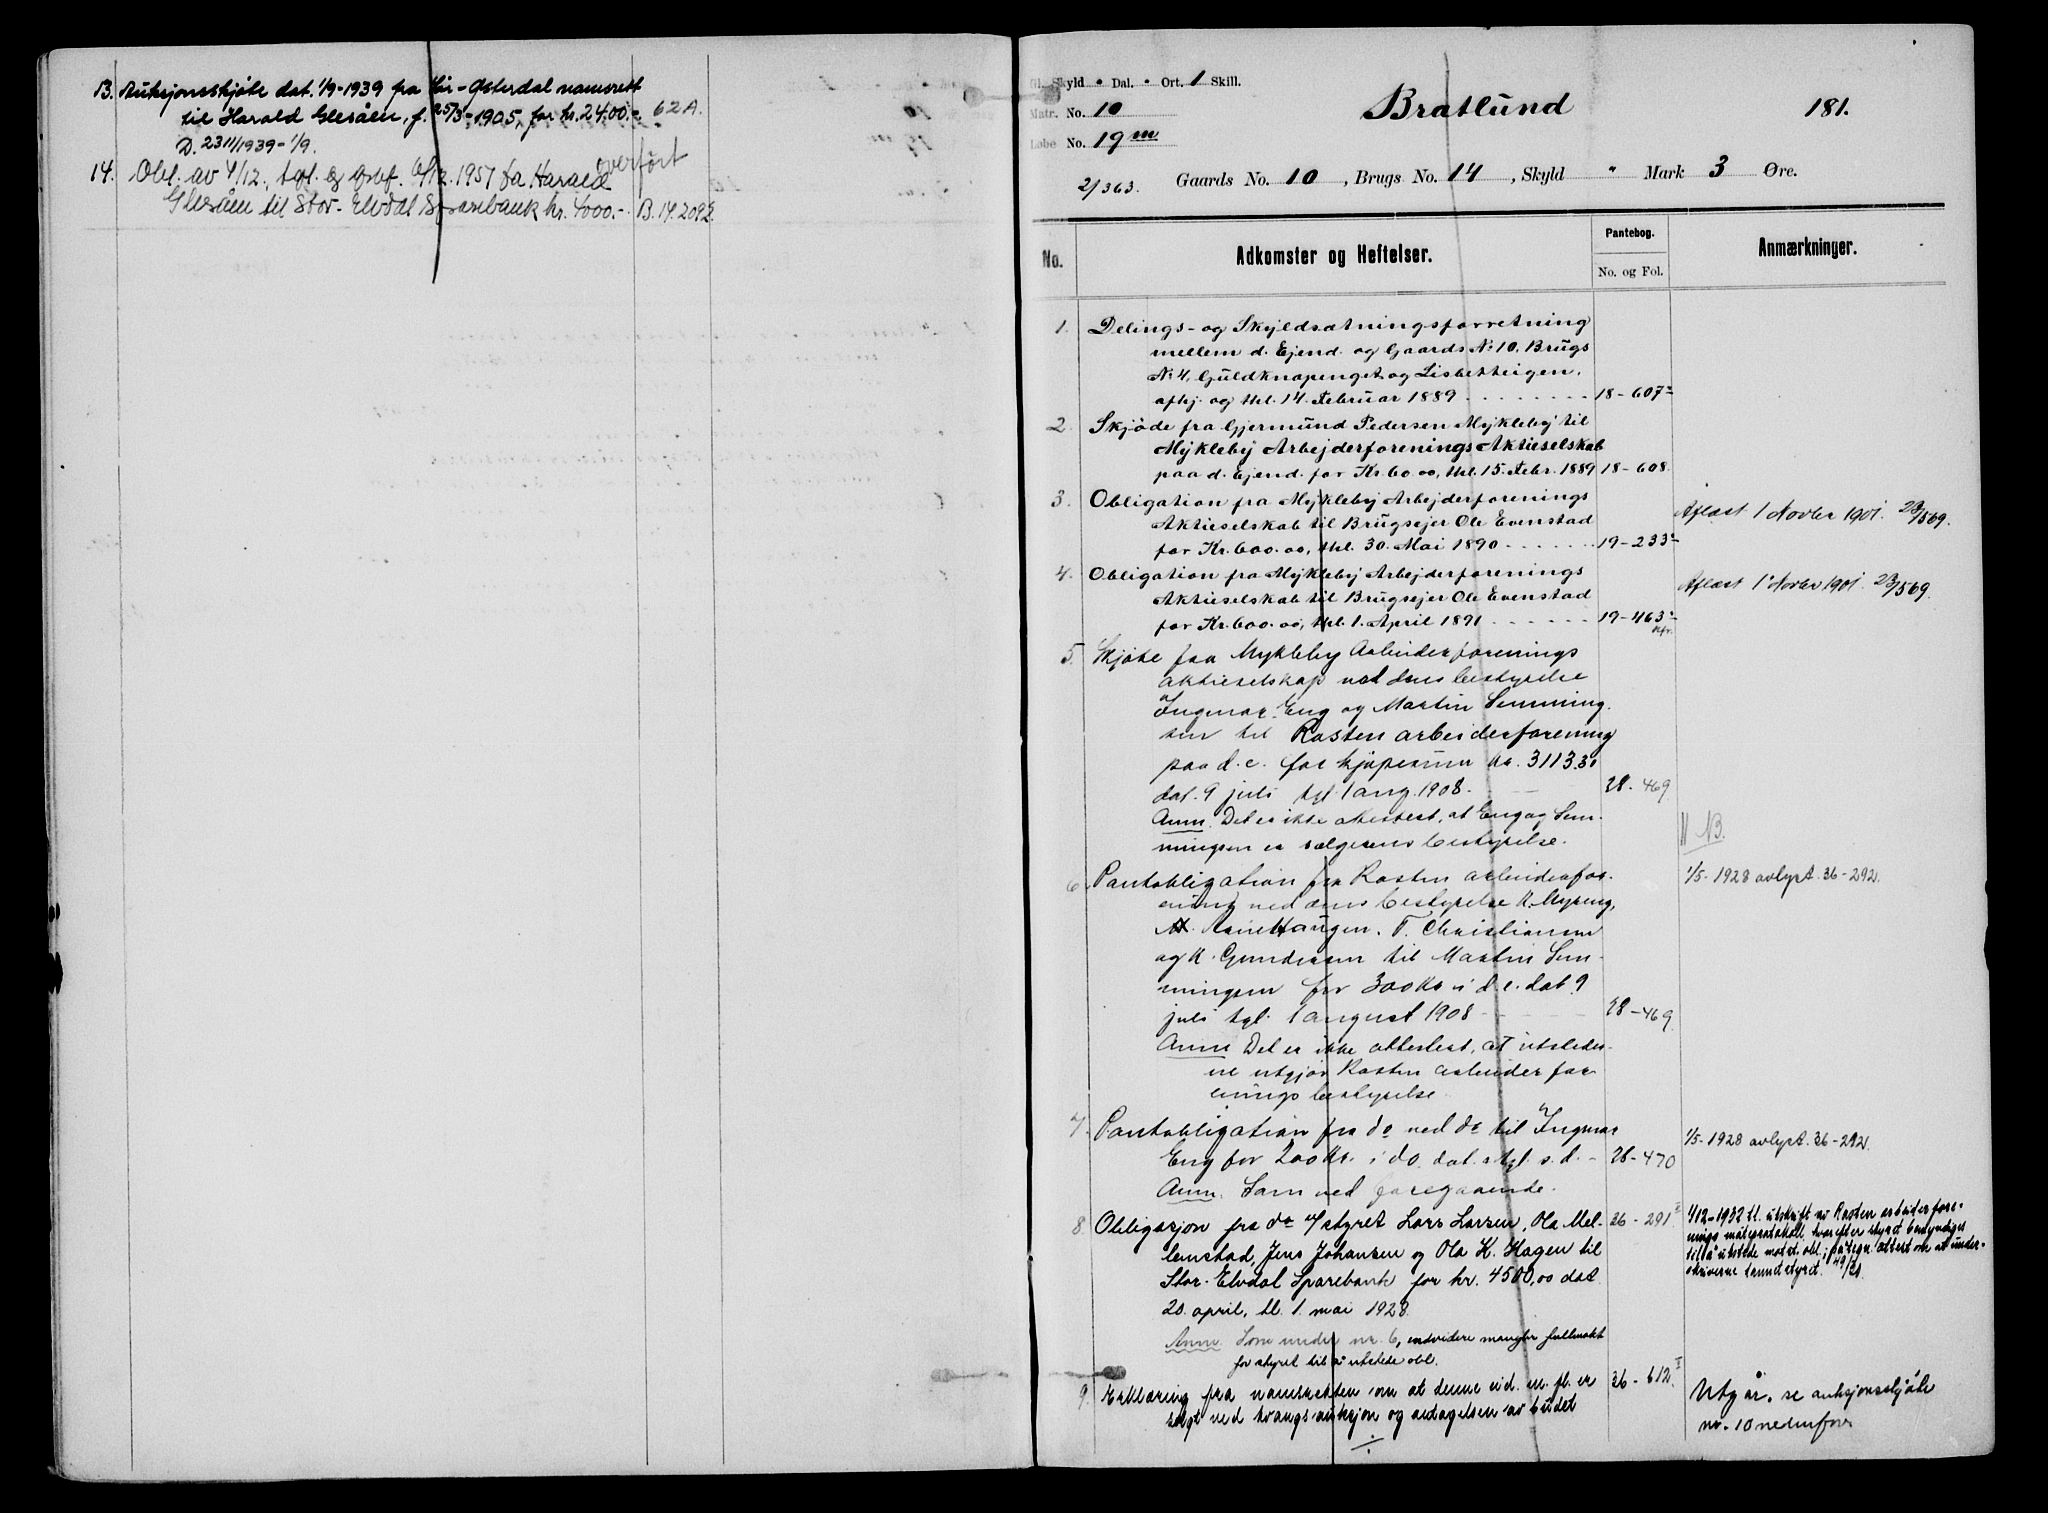 13. Auksjonsskjøte dat. 1/9-1939 fra Sør-Østerdal namsrett
til Harald Glesåen, f. 25/3-1905, for kr. 2400.- 62A.
D. 2311/1939-1/9.
overført
14. Obl. av 4/12., tgl. 6/12. 1957 fra Harald
Glesåen til Stor-Elvdal Sparebank kr. 4000.- B.14.2092
Gl. Skyld " Dal. " Ort. 1 Skill.
Matr. No. 10
Løbe No. 19 m
Bratlund
181.
2/363. Gaards No. 10, Brugs No. 14, Skyld " Mark 3 Øre.
No.
Adkomster og Heftelser.
Pantebog.
No. og Fol.
Anmærkninger.
1. Delings- og Skyldsætningsforretning
mellem d. Ejend. og Gaards No 10, Brugs
No 4, Guldknapenget og Lisbetteigen,
afhj. og thl. 14. Februar 1889 18-607
2. Skjøde fra Gjermund Pedersen Mykleby til
Mykleby Arbejderforenings Aktieselskab
paa d. Ejend. for Kr. 60.00, thl. 15. Febr. 1889 18-608.
3. Obligation fra Mykleby Arbejderforenings
Aktieselskab til Brugsejer Ole Evenstad
for Kr. 600.00, thl. 30. Mai 1890 19-233
Aflæst 1 Novbr 1901. 23/569.
4. Obligation fra Mykleby Arbejderforenings
Aktieselskab til Brugsejer Ole Evenstad
for Kr. 600.00, thl. 1. April 1891 19-463
Aflæst 1 Novbr 1901. 23/569.
5. Skjøte fra Mykleby Arbeiderforenings
aktieselskap ved dens bestyrelse
Ingmar Eng og Martin Semming
sen til Rasten arbeiderforening
paa d.e. for kjøpesum kr. 3113.30
dat. 9 juli tgl. 1 aug. 1908. 28-469
Anm. Det er ikke attestert, at Eng og Sem-
mingsen er sælgerens bestyrelse.
NB.
6. Pantobligation fra Rasten arbeiderfor-
ening ved dens bestyrelse K. Myreng,
Haugen, T. Christiansen
og K. Gundersen til Martin Sem-
mingsen for 300 Kr i d.e. dat 9
juli tgl. 1 august 1908 28-469
1/5-1928 avlyst. 36-292.
Anm Det er ikke attestert, at utsteder-
ne utgjør Rasten arbeiderfor
enings bestyrelse
7. Pantobligation fra do ved do til Ingmar
Eng for 200 Kr. i do. dat. & tgl. s.d. - 28-470
1/5-1928 avlyst. 36-292.
Anm. Som ved foregaaende.
8. Obligasjon fra do v/ styret Lars Larsen, Ola Mel-
lemstad, Jens Johansen og Ola K. Hagen til
Stor-Elvdal Sparebank for kr. 4500,00 dat
20. april, tl. 1. mai 1928.
36-291
4/12-1932 tl. utskrift av Rasten arbeiderfore-
nings møteprotokoll, hvorefter styret bemyndiges
til å utstede motst. obl.; påtegn. attest om at under-
skriverne dannet styret.
Anm. Som under nr. 6, endvidere mangler fullmakt
for styret til å utstede obl.
9. Erklæring fra namsretten om at denne eid. m. fl. er
solgt ved tvangsauksjon og antagelsen av budet
36-612.
Utgår, se auksjonsskjøte
nr. 10 nedenfor
÷